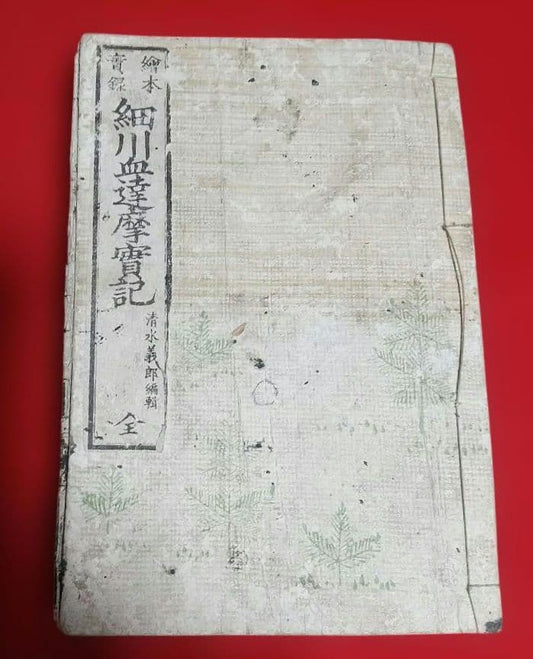 繪本
實録
細川血達摩實記
清水義郎編輯
全